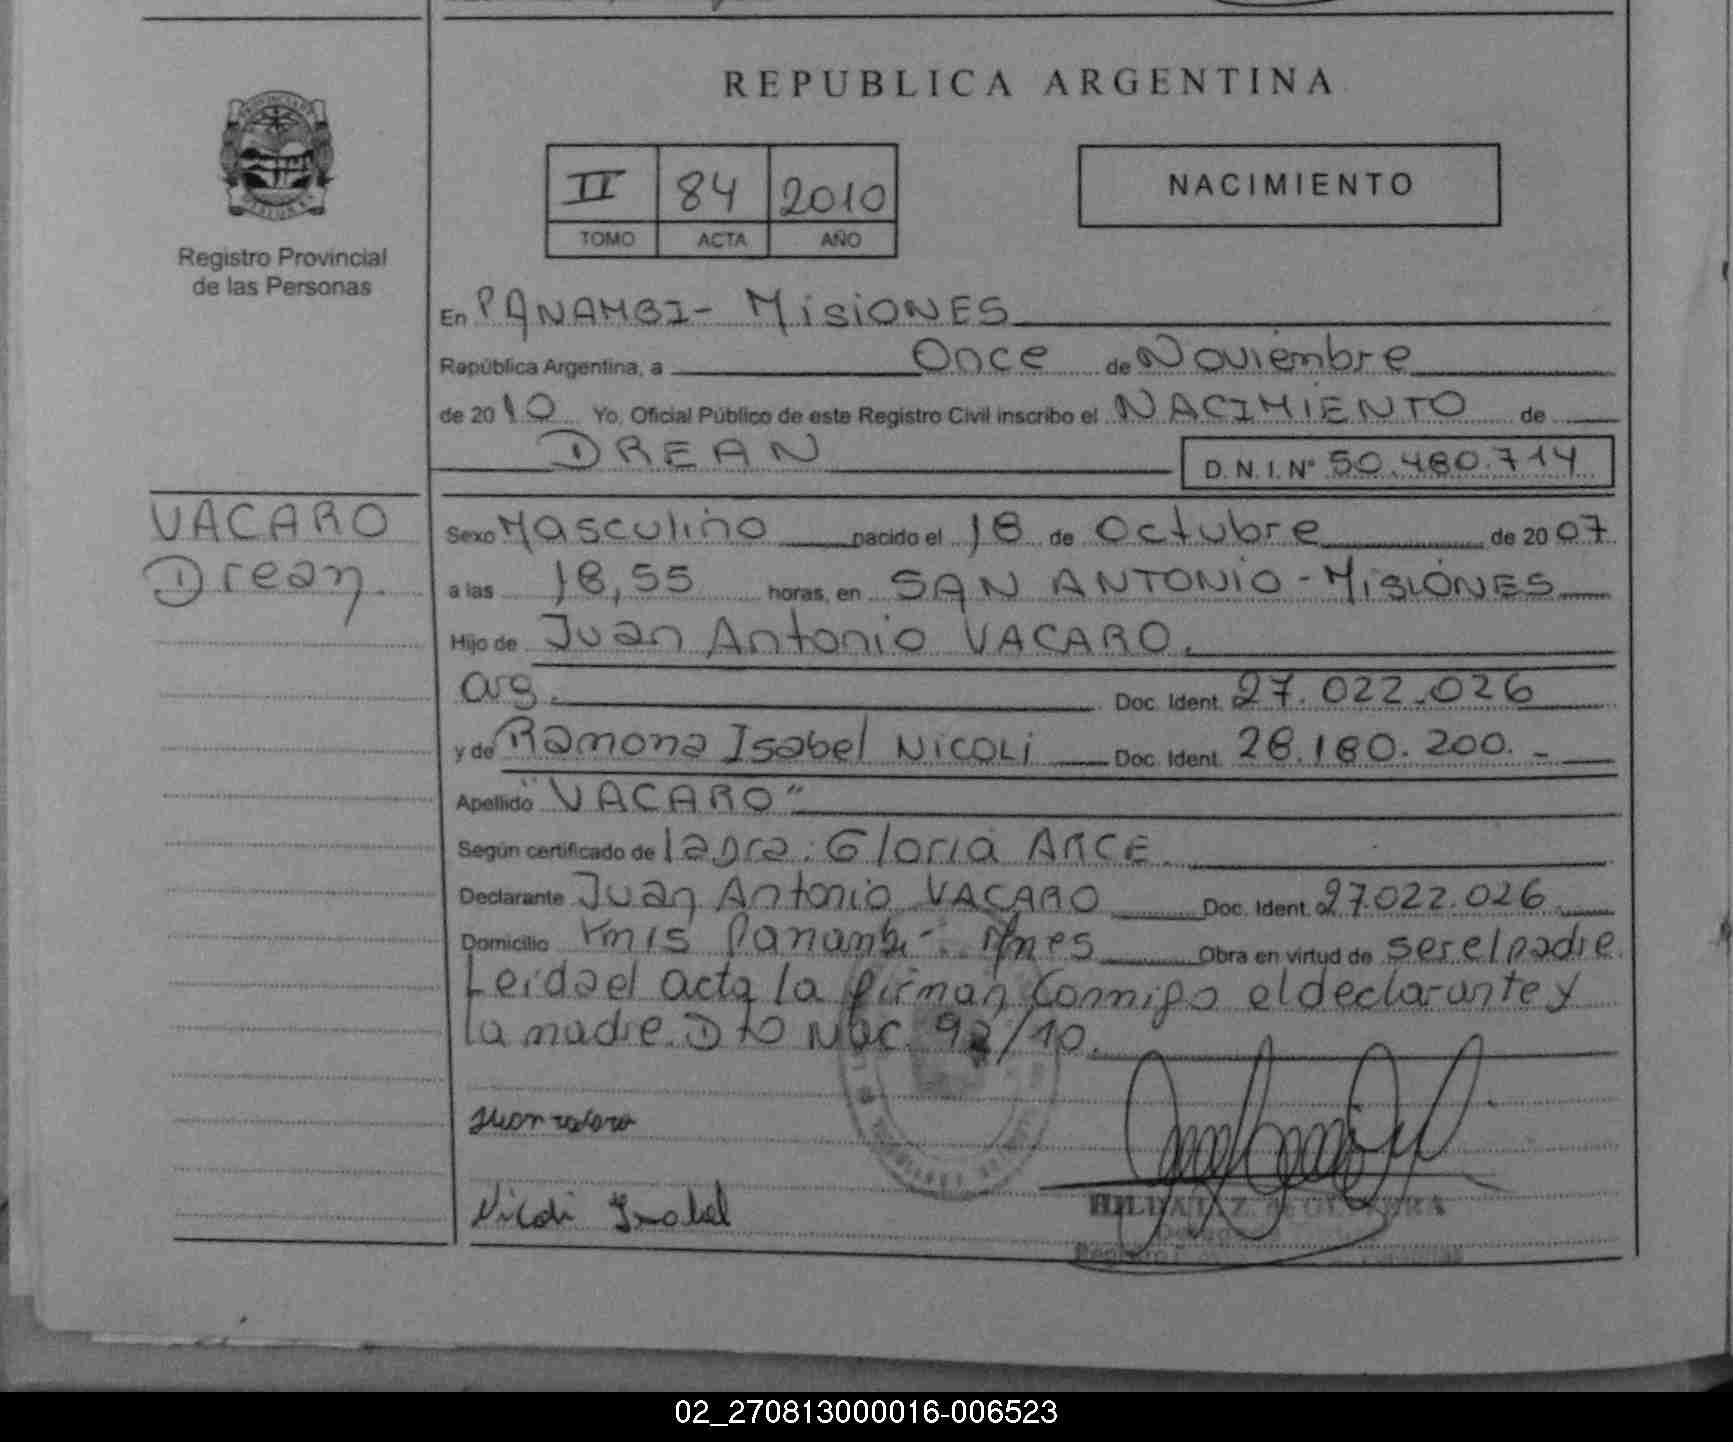 REPUBLICA ARGENTINA
II 84 2010
TOMO ACTA AÑO
NACIMIENTO
Registro Provincial
de las Personas
En PANAMBI - MISIONES
República Argentina, a Once de Noviembre
de 2010 Yo, Oficial Público de este Registro Civil inscribo el NACIMIENTO de
DREAN
D. N. I. N° 50.480.714
VACARO
Drean.
Sexo Masculino nacido el 18 de Octubre de 2007
a las 18,55 horas, en SAN ANTONIO - MISIONES
Hijo de Juan Antonio VACARO.
arg. Doc. Ident. 27.022.026
y de Ramona Isabel NICOLI Doc. Ident. 28.180.200.-
Apellido "VACARO"
Según certificado de la Dra: Gloria ARCE
Declarante Juan Antonio VACARO Doc. Ident. 27.022.026
Domicilio Kmis Panambi - Mnes Obra en virtud de ser el padre
Leida el acta la firman conmigo el declarante y
la madre. Dto Nac. 92/10.
Nicoli Isabel
02_270813000016-006523